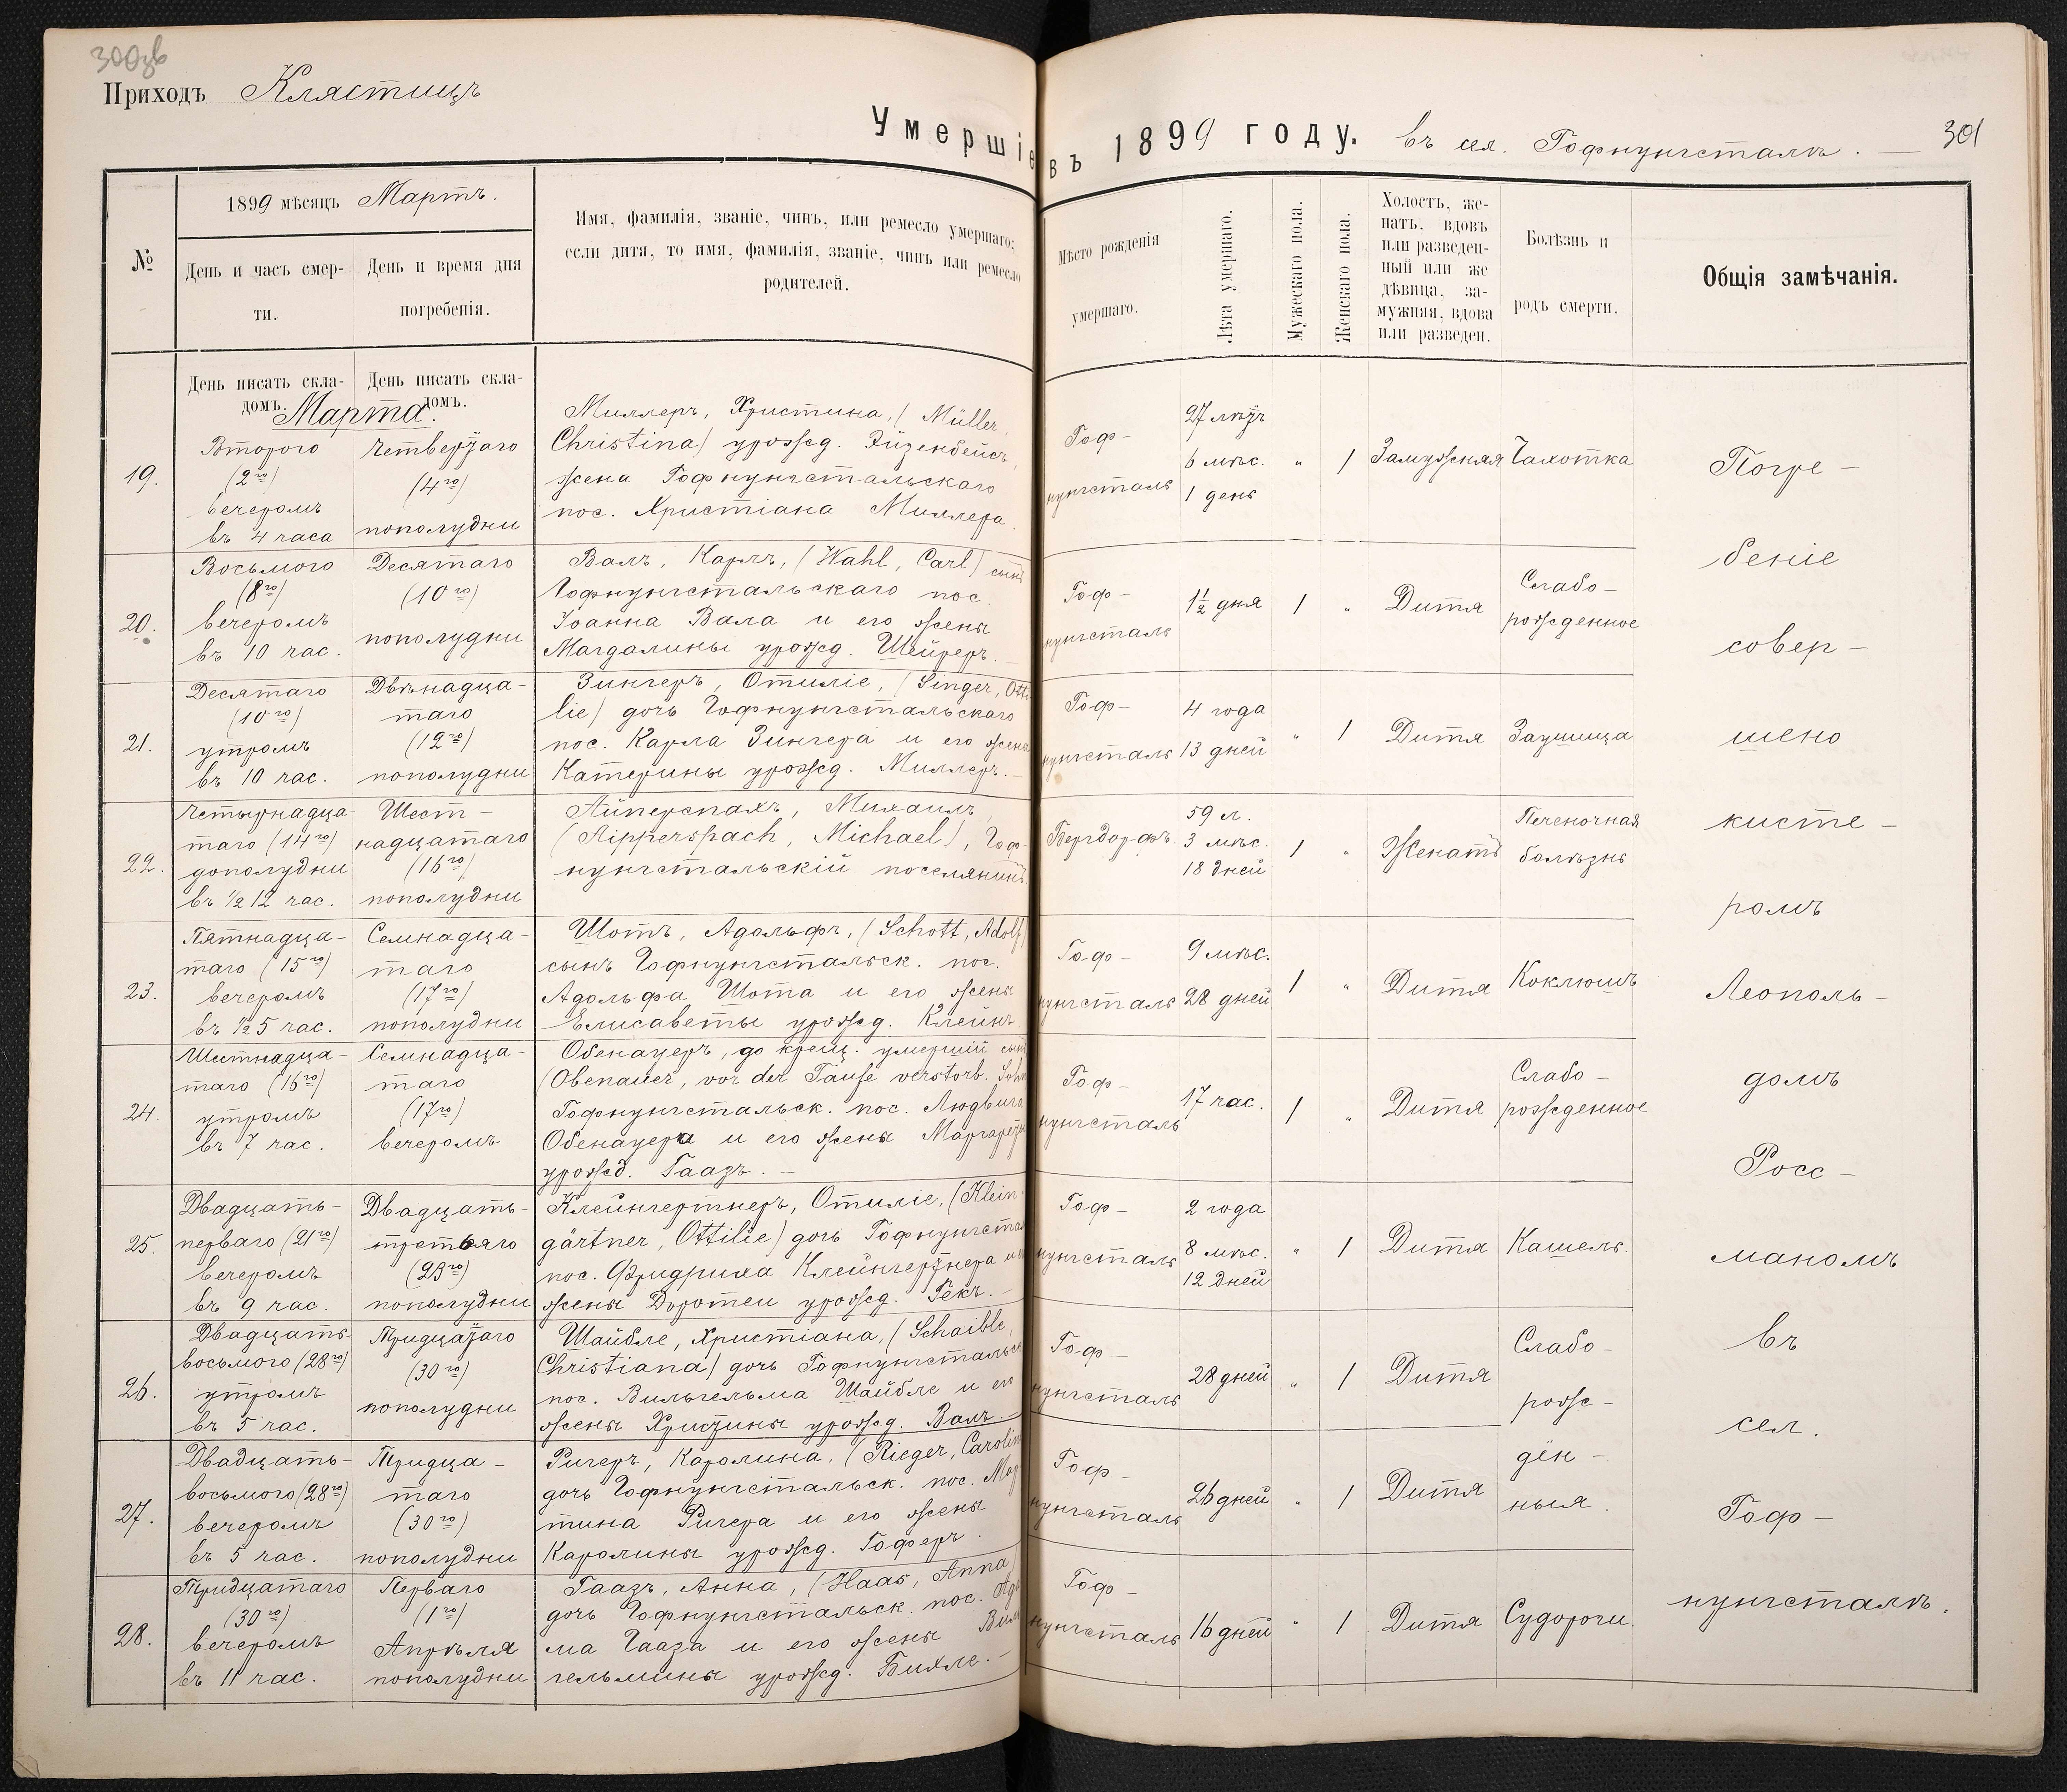 300зв
Приходъ Клястицъ
Умершіе въ 1899 году. въ сел. Гофнунгсталѣ. —
301
№
1899 мѣсяцъ Мартъ.
День и часъ смер-
ти.
День и время дня
погребенія.
Имя, фамилія, званіе, чинъ, или ремесло умершаго;
если дитя, то имя, фамилія, званіе, чинъ или ремесло
родителей.
Мѣсто рожденія
умершаго.
Лѣта умершаго.
Мужескаго пола.
Женскаго пола.
Холостъ, же-
натъ, вдовъ
или разведен-
ный или же
дѣвица, за-
мужняя, вдова
или разведен.
Болѣзнь и
родъ смерти.
Общія замѣчанія.
День писать скла-
домъ.
День писать скла-
домъ.
Марта.
19.
Второго
(2го)
вечеромъ
въ 4 часа
Четвертаго
(4го)
пополудни
Миллеръ, Христина, (Müller,
Christina) урожд. Эйзенбейсъ,
жена Гофнунгстальскаго
пос. Христіана Миллера.
Гоф-
нунгсталь
27 лѣтъ
6 мѣс.
1 день
"
1
Замужняя
Чахотка
20.
Восьмого
(8го)
вечеромъ
въ 10 час.
Десятаго
(10го)
пополудни
Валъ, Карлъ, (Wahl, Carl) сынъ
Гофнунгстальскаго пос.
Іоанна Вала и его жены
Магдалины урожд. Шейреръ. —
Гоф-
нунгсталь
1½ дня
1
"
Дитя
Слабо-
рожденное
21.
Десятаго
(10го)
утромъ
въ 10 час.
Двѣнадца-
таго
(12го)
пополудни
Зингеръ, Отиліе, (Singer, Otti
lie) дочь Гофнунгстальскаго
пос. Карла Зингера и его жены
Катерины урожд. Миллеръ. —
Гоф-
нунгсталь
4 года
13 дней
"
1
Дитя
Заушица
22.
Четырнадца-
таго (14го)
дополудни
въ ½ 12 час.
Шест-
надцатаго
(16го)
пополудни
Айперспахъ, Михаилъ,
(Aipperspach, Michael), Гоф-
нунгстальскій поселянинъ.
Бергдорфъ.
59 л.
3 мѣс.
18 дней
1
"
Женатъ
Печеночная
болѣзнь
23.
Пятнадца-
таго (15го)
вечеромъ
въ ½ 5 час.
Семнадца-
таго
(17го)
пополудни
Шотъ, Адольфъ, (Schott, Adolf)
сынъ Гофнунгстальск. пос.
Адольфа Шота и его жены
Елисаветы урожд. Клейнъ
Гоф-
нунгсталь
9 мѣс.
28 дней
1
"
Дитя
Коклюшъ
24.
Шестнадца-
таго (16го)
утромъ
въ 7 час.
Семнадца-
таго
(17го)
вечеромъ
Обенауеръ, до крещ. умершій сынъ
(Obenauer, vor der Taufe verstorb. Sohn
Гофнунгстальск. пос. Людвига
Обенауера и его жены Маргареты
урожд. Гаазъ. —
Гоф-
нунгсталь
17 час.
1
"
Дитя
Слабо-
рожденное
25.
Двадцать-
перваго (21го)
вечеромъ
въ 9 час.
Двадцать-
третьяго
(23го)
пополудни
Клейнгертнеръ, Отиліе, (Klein-
gärtner, Ottilie) дочь Гофнунгстал
пос. Фридриха Клейнгертнера и
жены Доротеи урожд. Гекъ. —
Гоф-
нунгсталь
2 года
8 мѣс.
12 дней
"
1
Дитя
Кашель.
26.
Двадцать-
восьмого (28го)
утромъ
въ 5 час.
Тридцатаго
(30го)
пополудни
Шайбле, Христіана, (Schaible,
Christiana) дочь Гофнунгстальск
пос. Вильгельма Шайбле и его
жены Христины урожд. Валъ. —
Гоф-
нунгсталь
28 дней
"
1
Дитя
Слабо-
рожд-
27.
Двадцать-
восьмого (28го)
вечеромъ
въ 5 час.
Тридца-
таго
(30го)
пополудни
Ригеръ, Каролина, (Rieger, Carolin
дочь Гофнунгстальск. пос. Мар
тина Ригера и его жены
Каролины урожд. Гоферъ.
Гоф-
нунгсталь
26 дней
"
1
Дитя
ден-
ныя.
28.
Тридцатаго
(30го)
вечеромъ
въ 11 час.
Перваго
(1го)
Апрѣля
пополудни
Гаазъ, Анна, (Haas, Anna)
дочь Гофнунгстальск. пос. Ада
ма Гааза и его жены Виль
гельмины урожд. Бихле. —
Гоф-
нунгсталь
16 дней
"
1
Дитя
Судороги.
Погре-
беніе
совер-
шено
кисте-
ромъ
Леополь-
домъ
Росс-
маномъ
въ
сел.
Гоф-
нунгсталѣ.